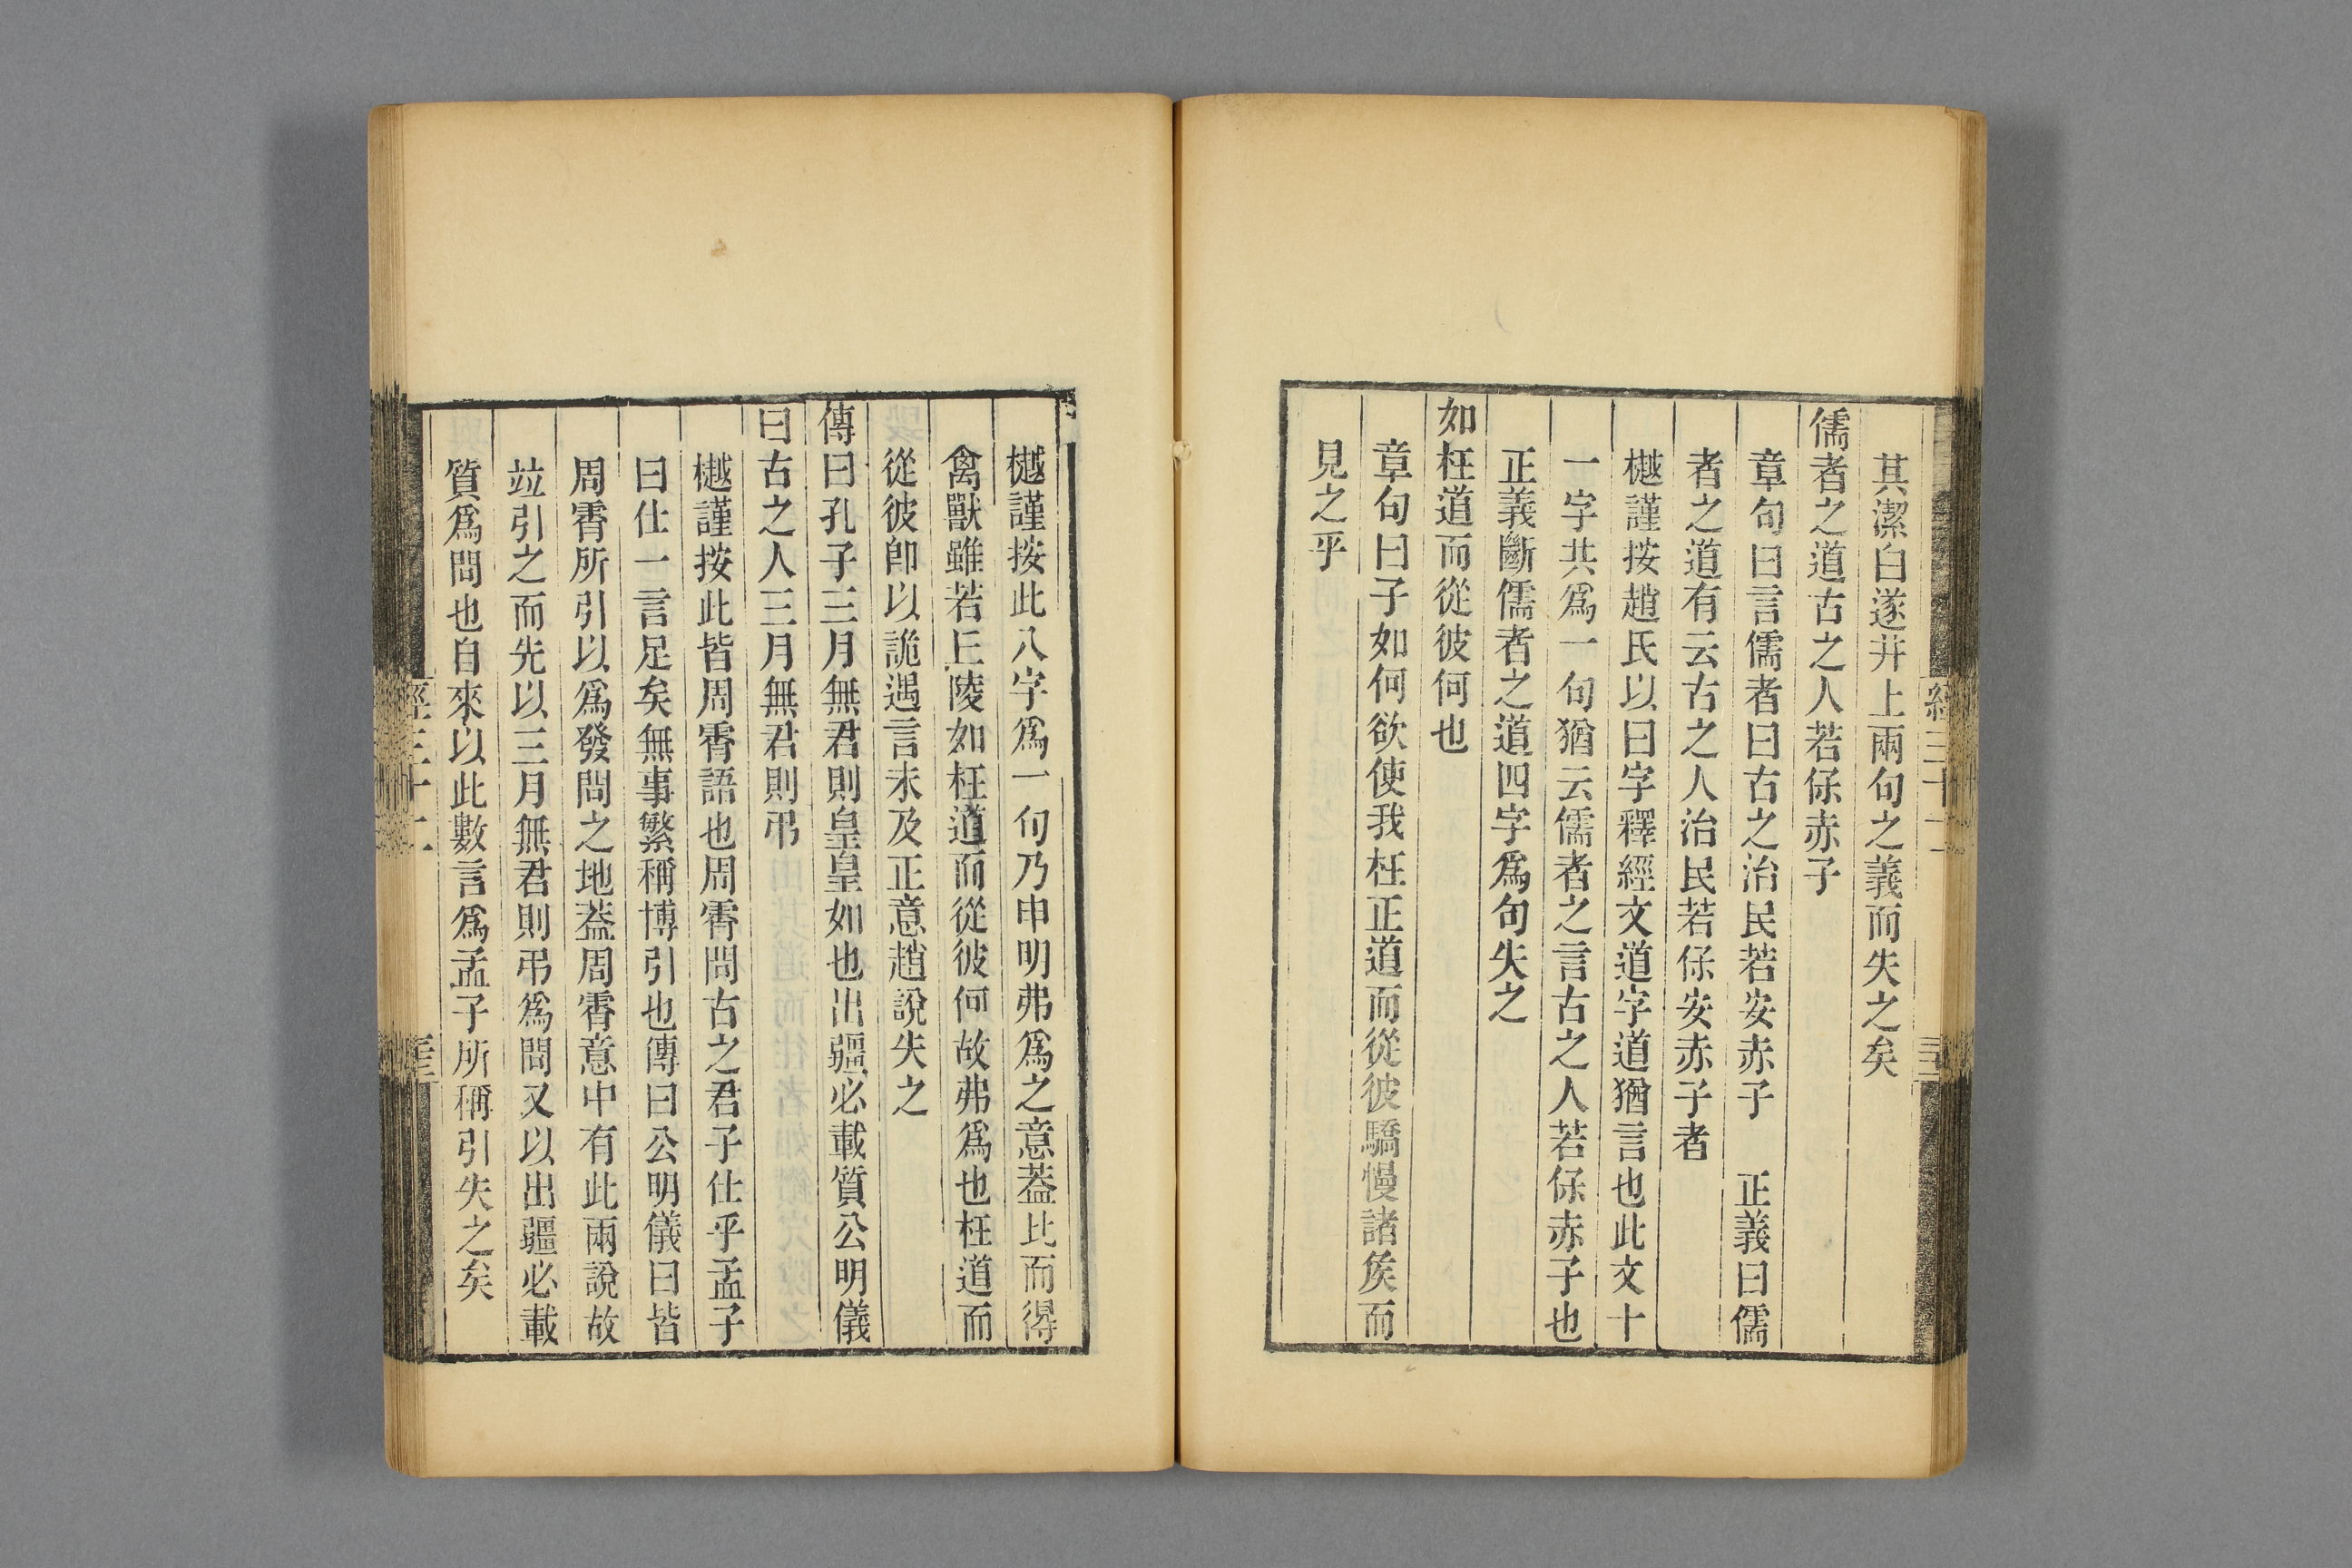 其潔白遂幷上兩句之義而失之矣
儒者之道古之人若保赤子
章句曰言儒者曰古之治民若安赤子　正義曰儒
者之道有云古之人治民若保安赤子者
樾謹按趙氏以曰字釋經文道字道猶言也此文十
一字共爲一句猶云儒者之言古之人若保赤子也
正義斷儒者之道四字爲句失之
如枉道而從彼何也
章句曰子如何欲使我枉正道而從彼驕慢諸矦而
見之乎
樾謹按此八字爲一句乃申明弗爲之意葢比而得
禽獸雖若丘陵如枉道而從彼何故弗爲也枉道而
從彼卽以詭遇言未及正意趙說失之
傳曰孔子三月無君則皇皇如也出疆必載質公明儀
曰古之人三月無君則弔
樾謹按此皆周霄語也周霄問古之君子仕乎孟子
曰仕一言足矣無事繁稱博引也傳曰公明儀曰皆
周霄所引以爲發問之地葢周霄意中有此兩說故
竝引之而先以三月無君則弔爲問又以出疆必載
質爲問也自來以此數言爲孟子所稱引失之矣